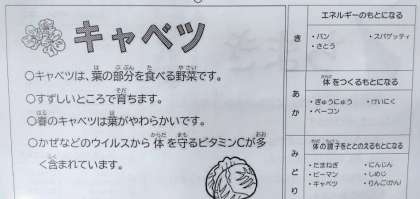 キャベツ
○キャベツは、葉の部分を食べる野菜です。
○すずしいところで育ちます。
○春のキャベツは葉がやわらかいです。
○かぜなどのウイルスから体を守るビタミンCが多
く含まれています。
き
エネルギーのもとになる
・パン ・スパゲッティ
・さとう
あか
体をつくるもとになる
・ぎゅうにゅう ・けいにく
・ベーコン
みどり
体の調子をととのえるもとになる
・たまねぎ ・にんじん
・ピーマン ・しめじ
・キャベツ ・りんご(かん)